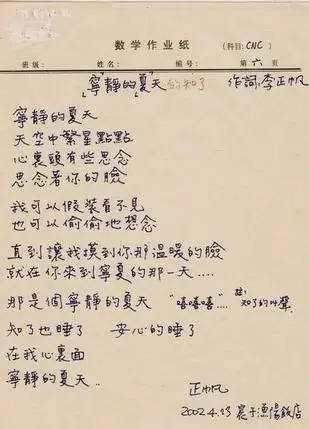 数学作业纸
(科目：CNC)
班级： 姓名： 编号： 第六页
"寧"靜的"夏"天的知了 作詞,李正帆
寧靜的夏天
天空中繁星點點
心裏頭有些思念
思念著你的臉
我可以假裝看不見
也可以偷偷地想念
直到讓我摸到你那溫暖的臉
就在你來到寧夏的那一天....
那是個寧靜的夏天 "嘻嘻嘻"... 註:知了的叫聲
知了也睡了 安心的睡了
在我心裏面
寧靜的夏天..
正帆
2002.4.23 農于漁陽飯店